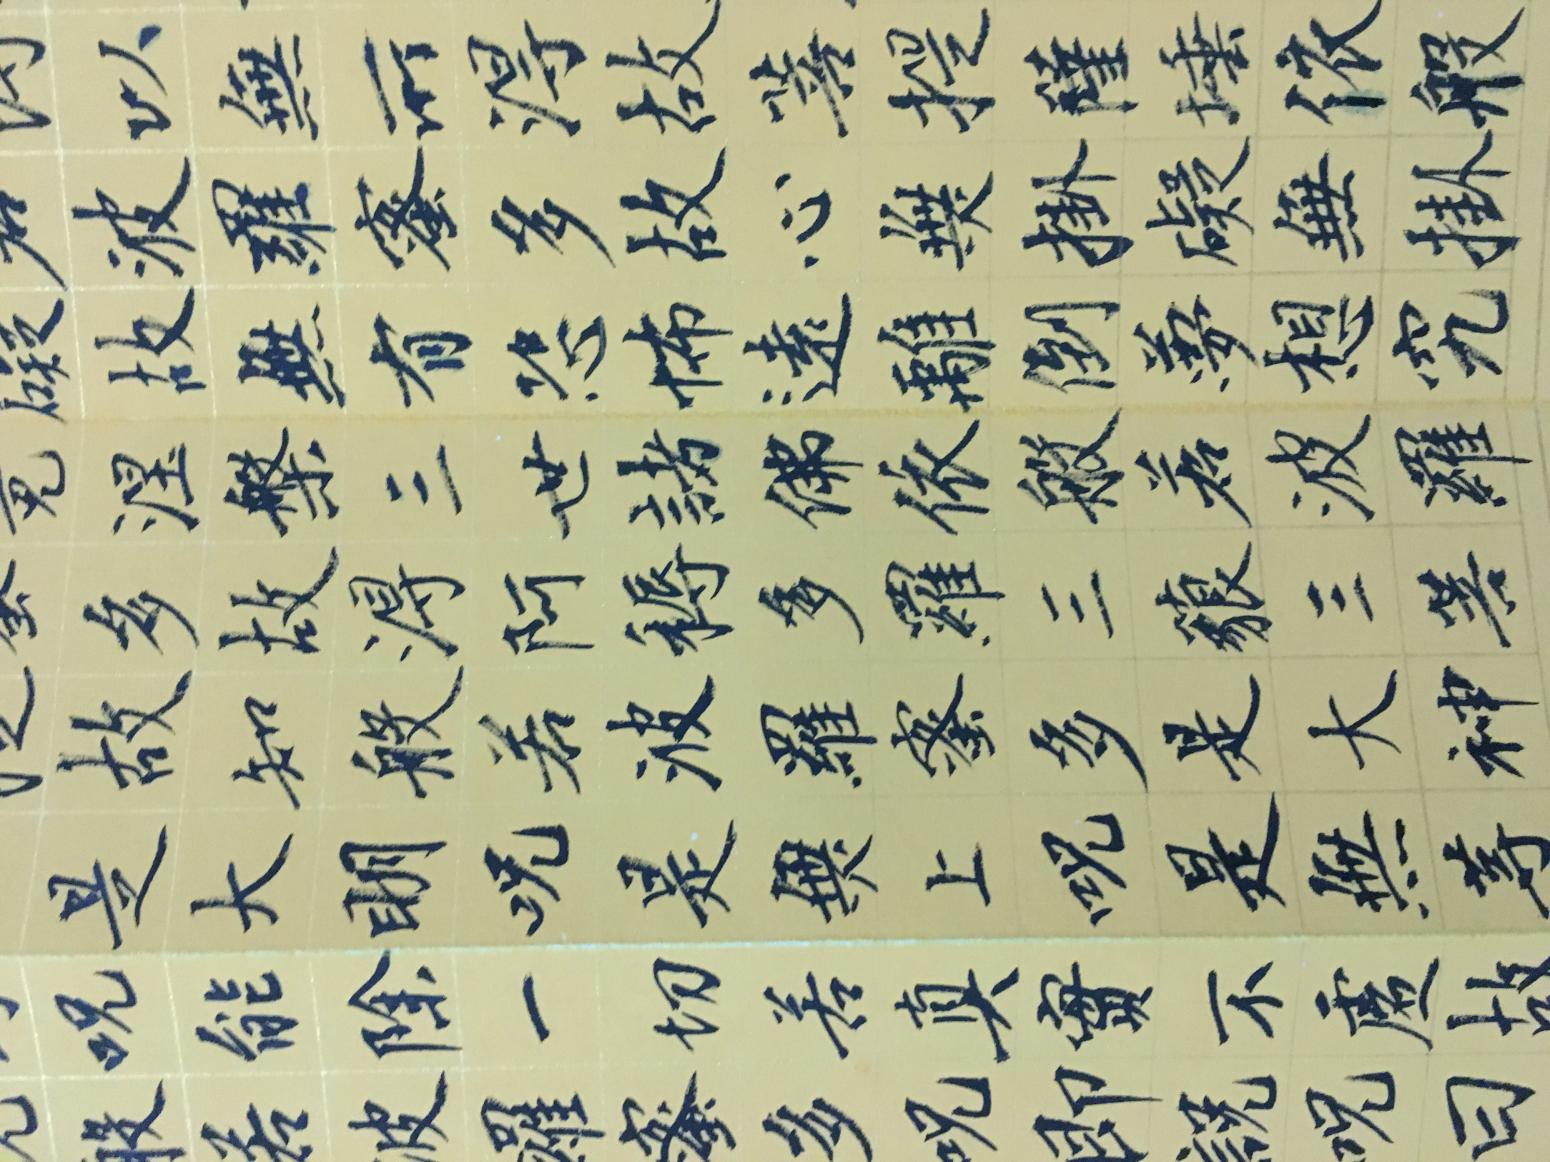 以無所得故菩提薩埵依般
若波羅蜜多故心無掛礙無掛
礙故無有恐怖遠離倒夢想究
竟涅槃三世諸佛依般若波羅
多故得阿耨多羅三藐三菩
故知般若波羅蜜多是大神
是大明呪是無上呪是無等
呪能除一切苦真實不虛故
般若波羅蜜多呪即說呪曰